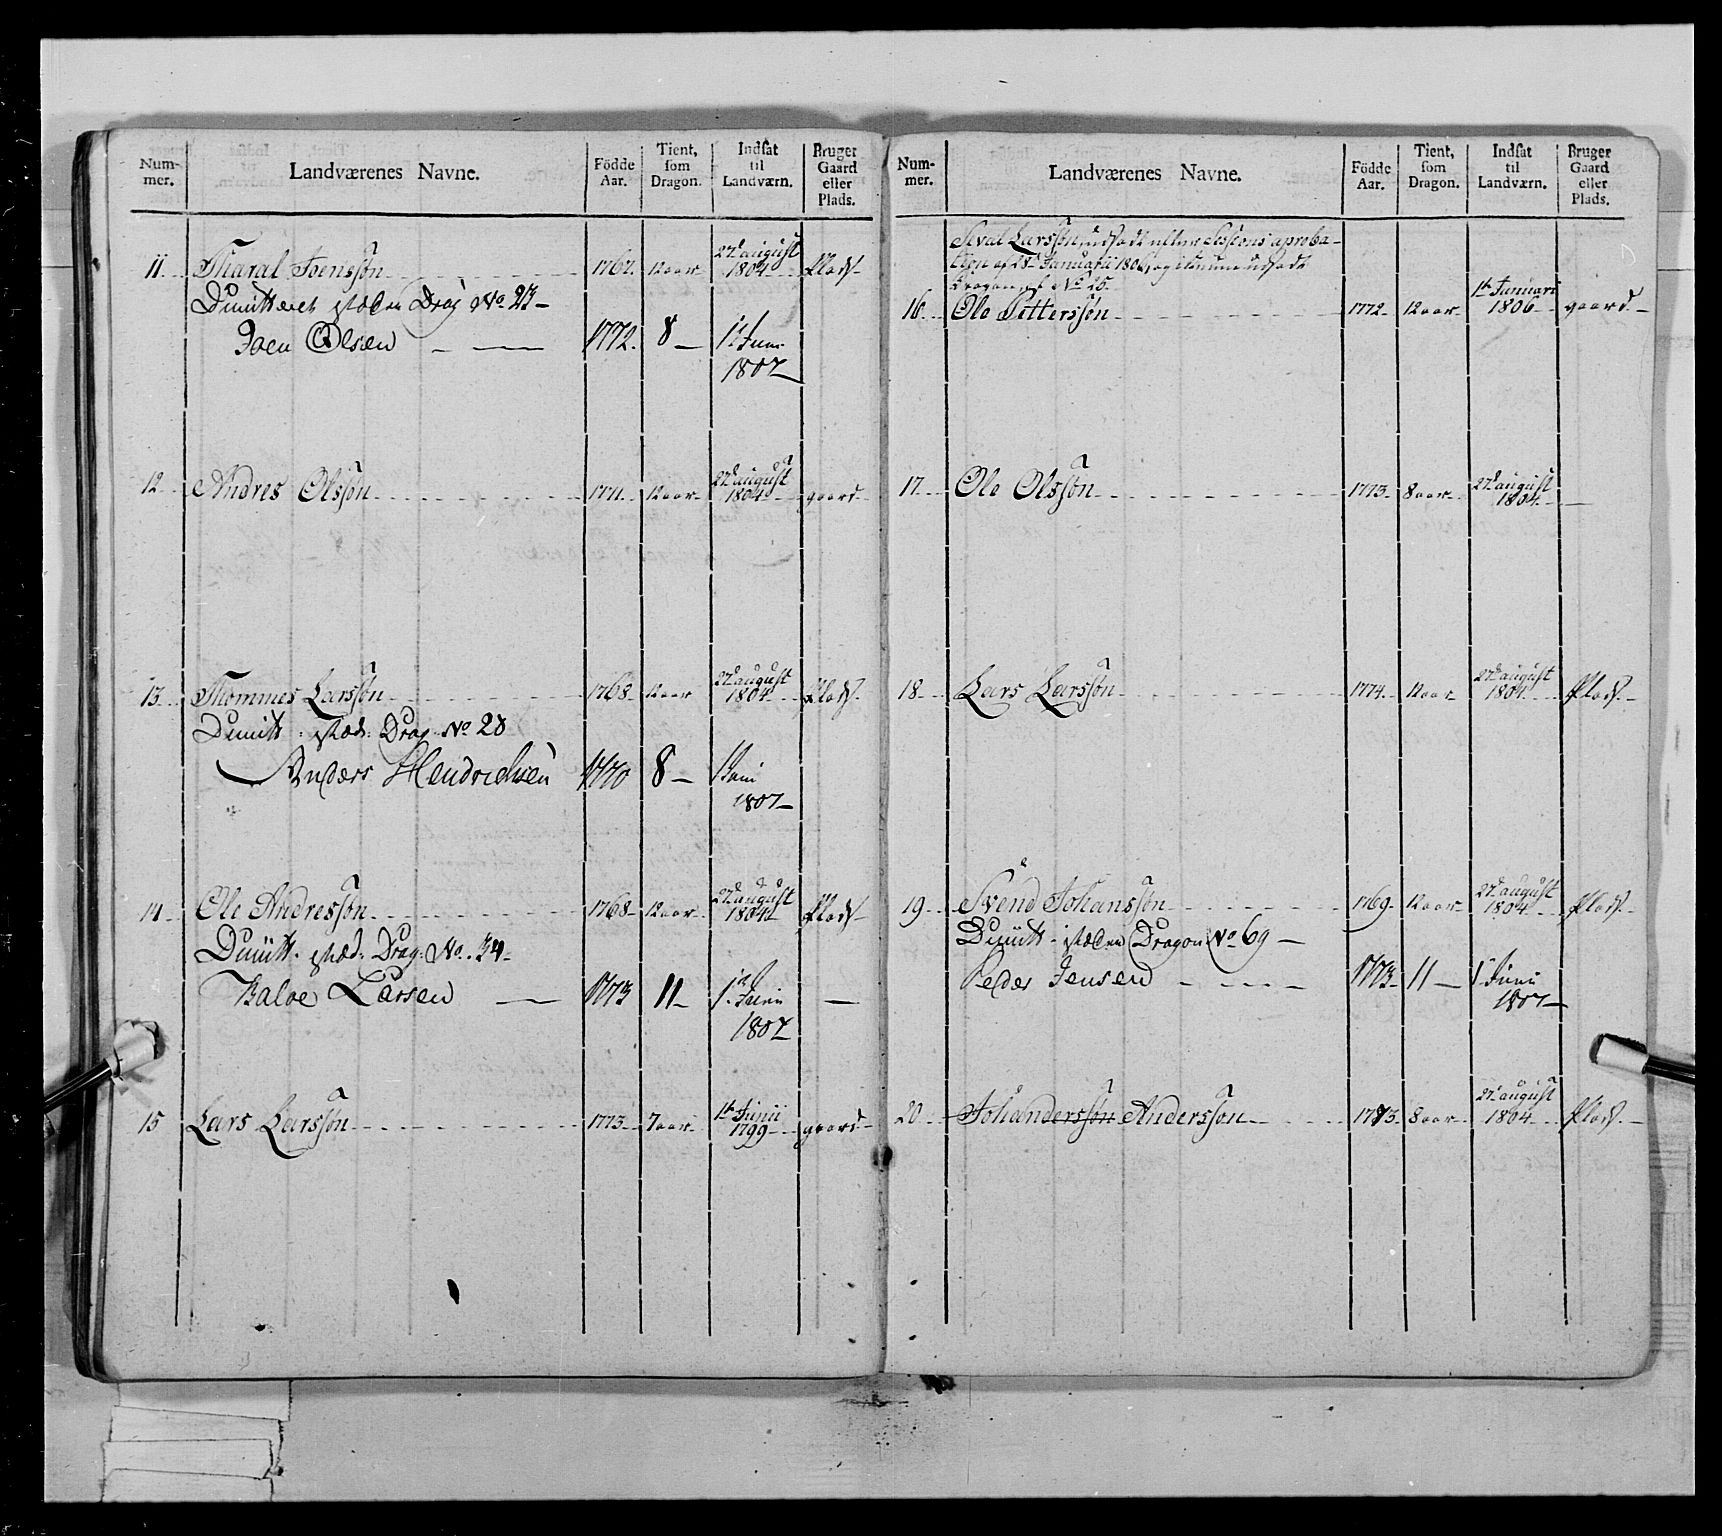 Num-
mer.
Landværenes Navne.
Födde
Aar.
Tient,
som
Dragon.
Indsat
til
Landværn.
Bruger
Gaard
eller
Plads.
11. Tharal Joensson 1767. 12 aar 27d august 1804 Plads
Dimitteret isteden Drag No 23
Joen Olsen 1772. 8 1t Juni 1807
12. Andres Olsson 1771. 12 aar 27d august 1804 gaard
13. Thommes Larsson 1768 12 aar 27d august 1804 Plads
Dimitt: isted: Drag No 28
Anders Hendrichsen 1770 8 1 Juni 1807
14. Ole Andresson 1768 12 aar 27d august 1804 Plads
Dimitt. isted: Drag: No. 34
Larsen 1773 11 1t Junii 1807
15 Lars Larsson 1773 7 aar 1t Junii 1799 gaard
Num-
mer.
Landværenes Navne.
Födde
Aar.
Tient,
som
Dragon.
Indsat
til
Landværn.
Bruger
Gaard
eller
Plads.
Sival Larsson, udsadt efter Sessions aproba-
tion af 28d Januarii 1806, og udsadt
Dragon No 25.
16 Ole Pettersson 1772 12 aar 1t Januari 1806 gaard
17. Ole Olsson 1773 8 aar 27d august 1804
18 Lars Larsson 1774 12 aar 27d august 1804 Plads
19 Svend Johansson 1769 12 aar 27d august 1804 Plads
Dimitt isteden Dragon No 69
Peder Jensen 1773 11 1 Juni 1807
20 Johandersson Andersson 1773 8 aar 27d august 1804 Plads